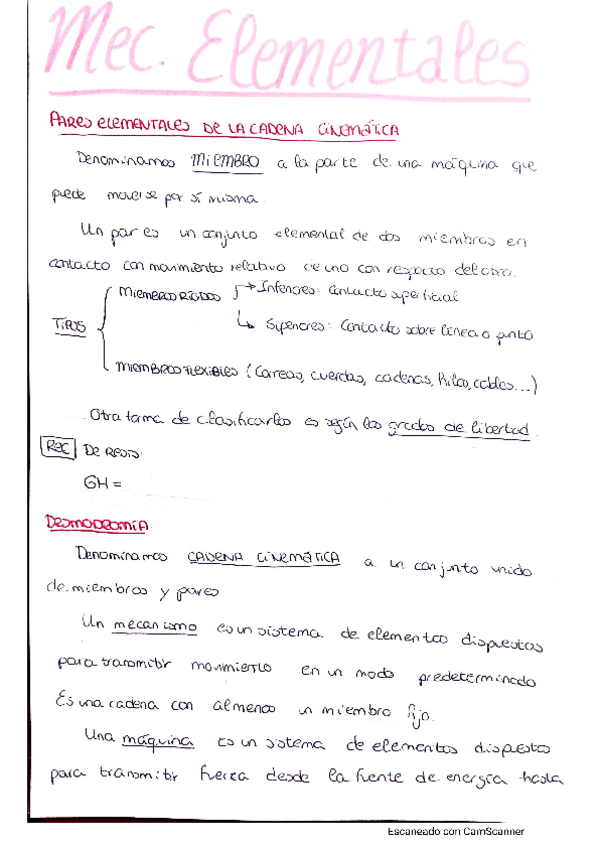 Mec. Elementales
PARES ELEMENTALES DE LA CADENA CINEMÁTICA
Denominamos MIEMBRO a la parte de una máquina que
puede moverse por sí misma.
Un par es un conjunto elemental de dos miembros en
contacto con movimiento relativo de uno con respecto del otro.
MIEMBROS RÍGIDOS → Inferiores: Contacto superficial
TIPOS
↳ Superiores: Contacto sobre línea o punto
MIEMBROS FLEXIBLES (Correas, cuerdas, cadenas, hilos, cables...)
Otra forma de clasificarlos es según los grados de libertad.
REC De
GH =
DESMODROMÍA
Denominamos CADENA CINEMÁTICA a un conjunto unido
de miembros y pares
Un mecanismo es un sistema de elementos dispuestos
para transmitir movimiento en un modo predeterminado
Es una cadena con al menos un miembro fijo.
Una máquina es un sistema de elementos dispuesto
para transmitir fuerza desde la fuente de energía hasta
Escaneado con CamScanner